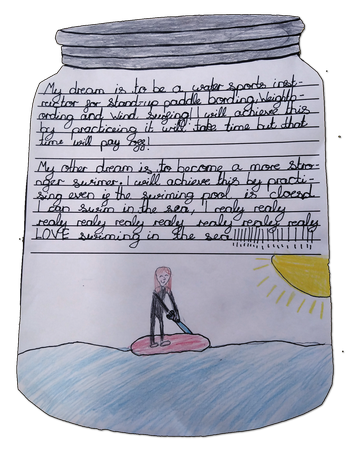 My dream is to be a water sports inst-
ructor for stand-up paddle bording,
ording and wind surfing! I will achieve this
by practiceing it will take time but that
time will pay off!
My other dream is to become a more stro-
nger swimer. I will achieve this by practi-
sing even if the swiming pool is cloesd
I can swim in the sea, I realy realy
realy realy realy realy realy realy realy
LOVE swiming in the sea!!!!!!!!!!!!!!!!